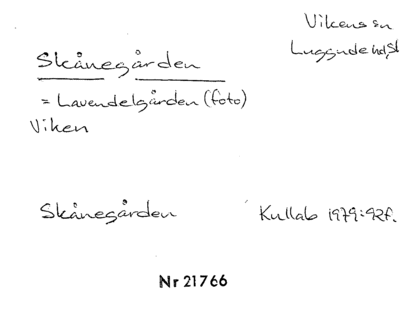 Vikens sn
Luggude hd, Sk
Skånegården
= Lavendelgården (foto)
Viken
Skånegården Kullab 1979:92f.
Nr 21766